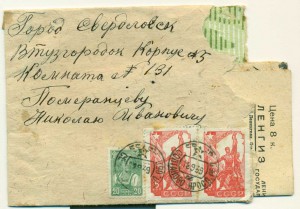 Город Свердловск
Втузгородок Корпус №5
Комната № 131
Померанцеву
Николаю Ивановичу
Цена 8 к.
ЛЕНГИЗ
ГОСУДА
20
СССР
СССР